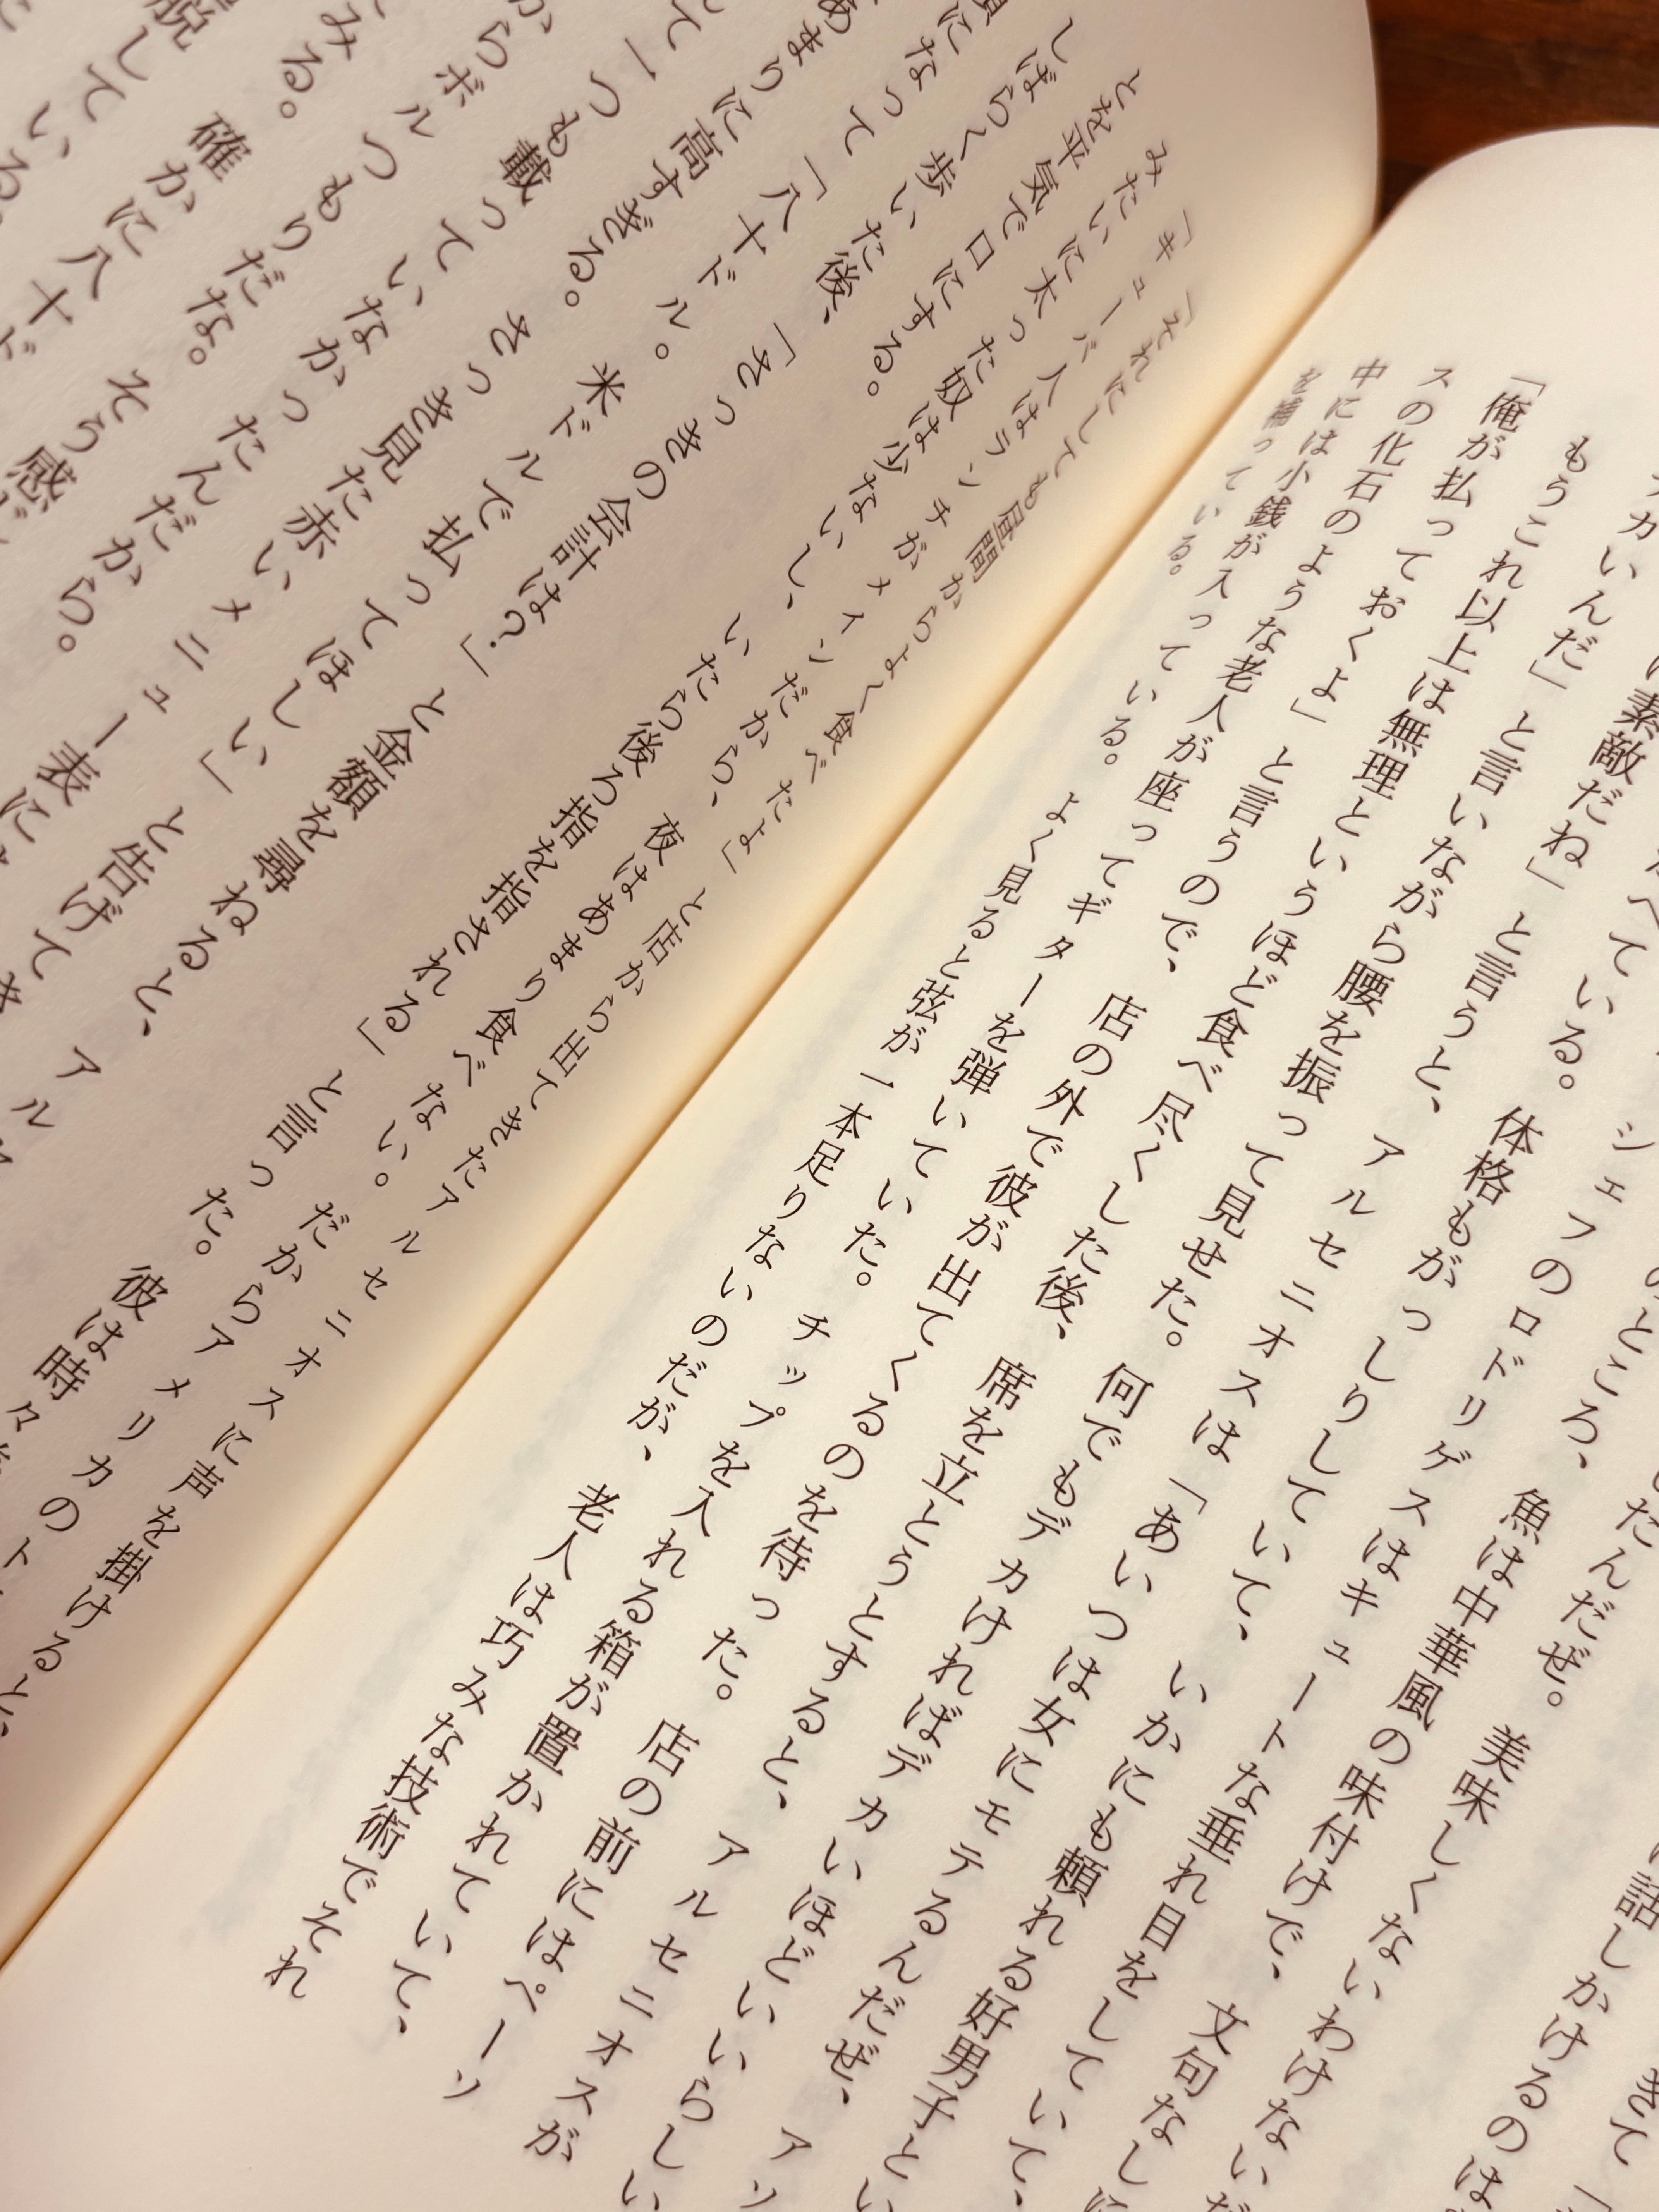 きて「
に話しかけるのは
したんだぜ。美味しくないわけないだ
のところ、魚は中華風の味付けで、文句なしに
シェフのロドリゲスはキュートな垂れ目をしていて、
べている。体格もがっしりしていて、いかにも頼れる好男子とい
は素敵だね」と言うと、アルセニオスは「あいつは女にモテるんだぜ、アソ
カいんだ」と言いながら腰を振って見せた。何でもデカければデカいほどいいらしい
もうこれ以上は無理というほど食べ尽くした後、席を立とうとすると、アルセニオスが
「俺が払っておくよ」と言うので、店の外で彼が出てくるのを待った。店の前にはペーソ
スの化石のような老人が座ってギターを弾いていた。チップを入れる箱が置かれていて、
中には小銭が入っている。よく見ると弦が一本足りないのだが、老人は巧みな技術でそれ
を補っている。
「それにしても昼間からよく食べたよ」と店から出てきたアルセニオスに声を掛けると、
「キューバ人はランチがメインだから、夜はあまり食べない。だからアメリカのト
みたいに太った奴は少ないし、いたら後ろ指を指される」と言った。彼は時々
とを平気で口にする。
しばらく歩いた後、「さっきの会計は?」と金額を尋ねると、アル
になって「八十ドル。米ドルで払ってほしい」と告げてき
あまりに高すぎる。さっき見た赤いメニュー表に
て一つも載っていなかったんだから。
からボルつもりだな。そら
みる。確かに八十ド
脱している